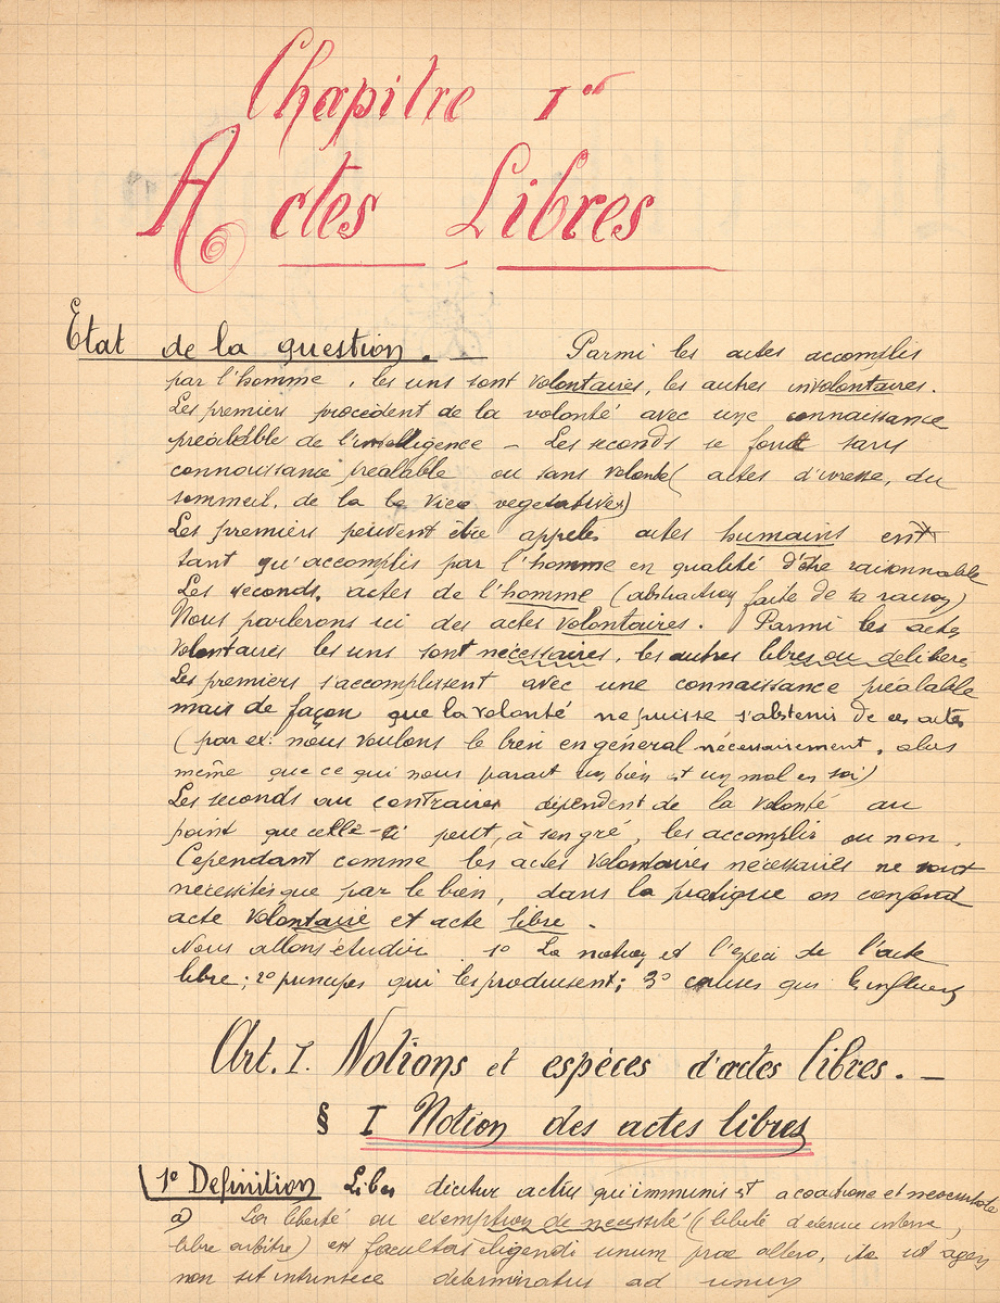 Chapitre Ier
Actes Libres
Etat de la question. — Parmi les actes accomplis
par l'homme, les uns sont volontaires, les autres involontaires.
Les premiers procèdent de la volonté avec une connaissance
préalable de l'intelligence — Les seconds se font sans
connaissance préalable ou sans volonté (actes d'ivresse, du
sommeil, de la vie végétative)
Les premiers peuvent être appelés actes humains en
tant qu'accomplis par l'homme en qualité d'être raisonnable
Les seconds, actes de l'homme (abstraction faite de sa raison)
Nous parlerons ici des actes volontaires. Parmi les actes
volontaires les uns sont nécessaires, les autres libres ou délibérés
Les premiers s'accomplissent avec une connaissance préalable
mais de façon que la volonté ne puisse s'abstenir de ces actes
(par ex: nous voulons le bien en général nécessairement, alors
même que ce qui nous parait un bien est un mal en soi)
Les seconds au contraire dépendent de la volonté au
point que celle-ci peut, à son gré, les accomplir ou non.
Cependant comme les actes volontaires nécessaires ne sont
nécessités que par le bien, dans la pratique on confond
acte volontaire et acte libre.
Nous allons étudier 1° La notion et l'espèce de l'acte
libre; 2° principes qui les produisent; 3° causes qui
Art. I. Notions et espèces d'actes libres. —
§ I Notion des actes libres
1° Definition Liber dicitur actus qui immunis est a coactione et necessitate
a) La liberté ou exemption de nécessité (liberté d'élection interne,
libre arbitre) est facultas eligendi unum prae altero, ita ut agens
non sit intrinsece determinatus ad unum